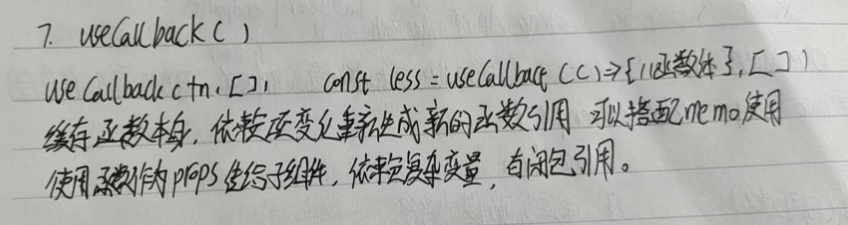 7. useCallback( )
useCallback(fn, [ ]),  const less = useCallback(()=>{//函数体}, [ ])
缓存函数本身，依赖项变化重新生成新的函数引用 可以搭配memo使用
使用函数作为props传给子组件，依赖复杂变量，有闭包引用。